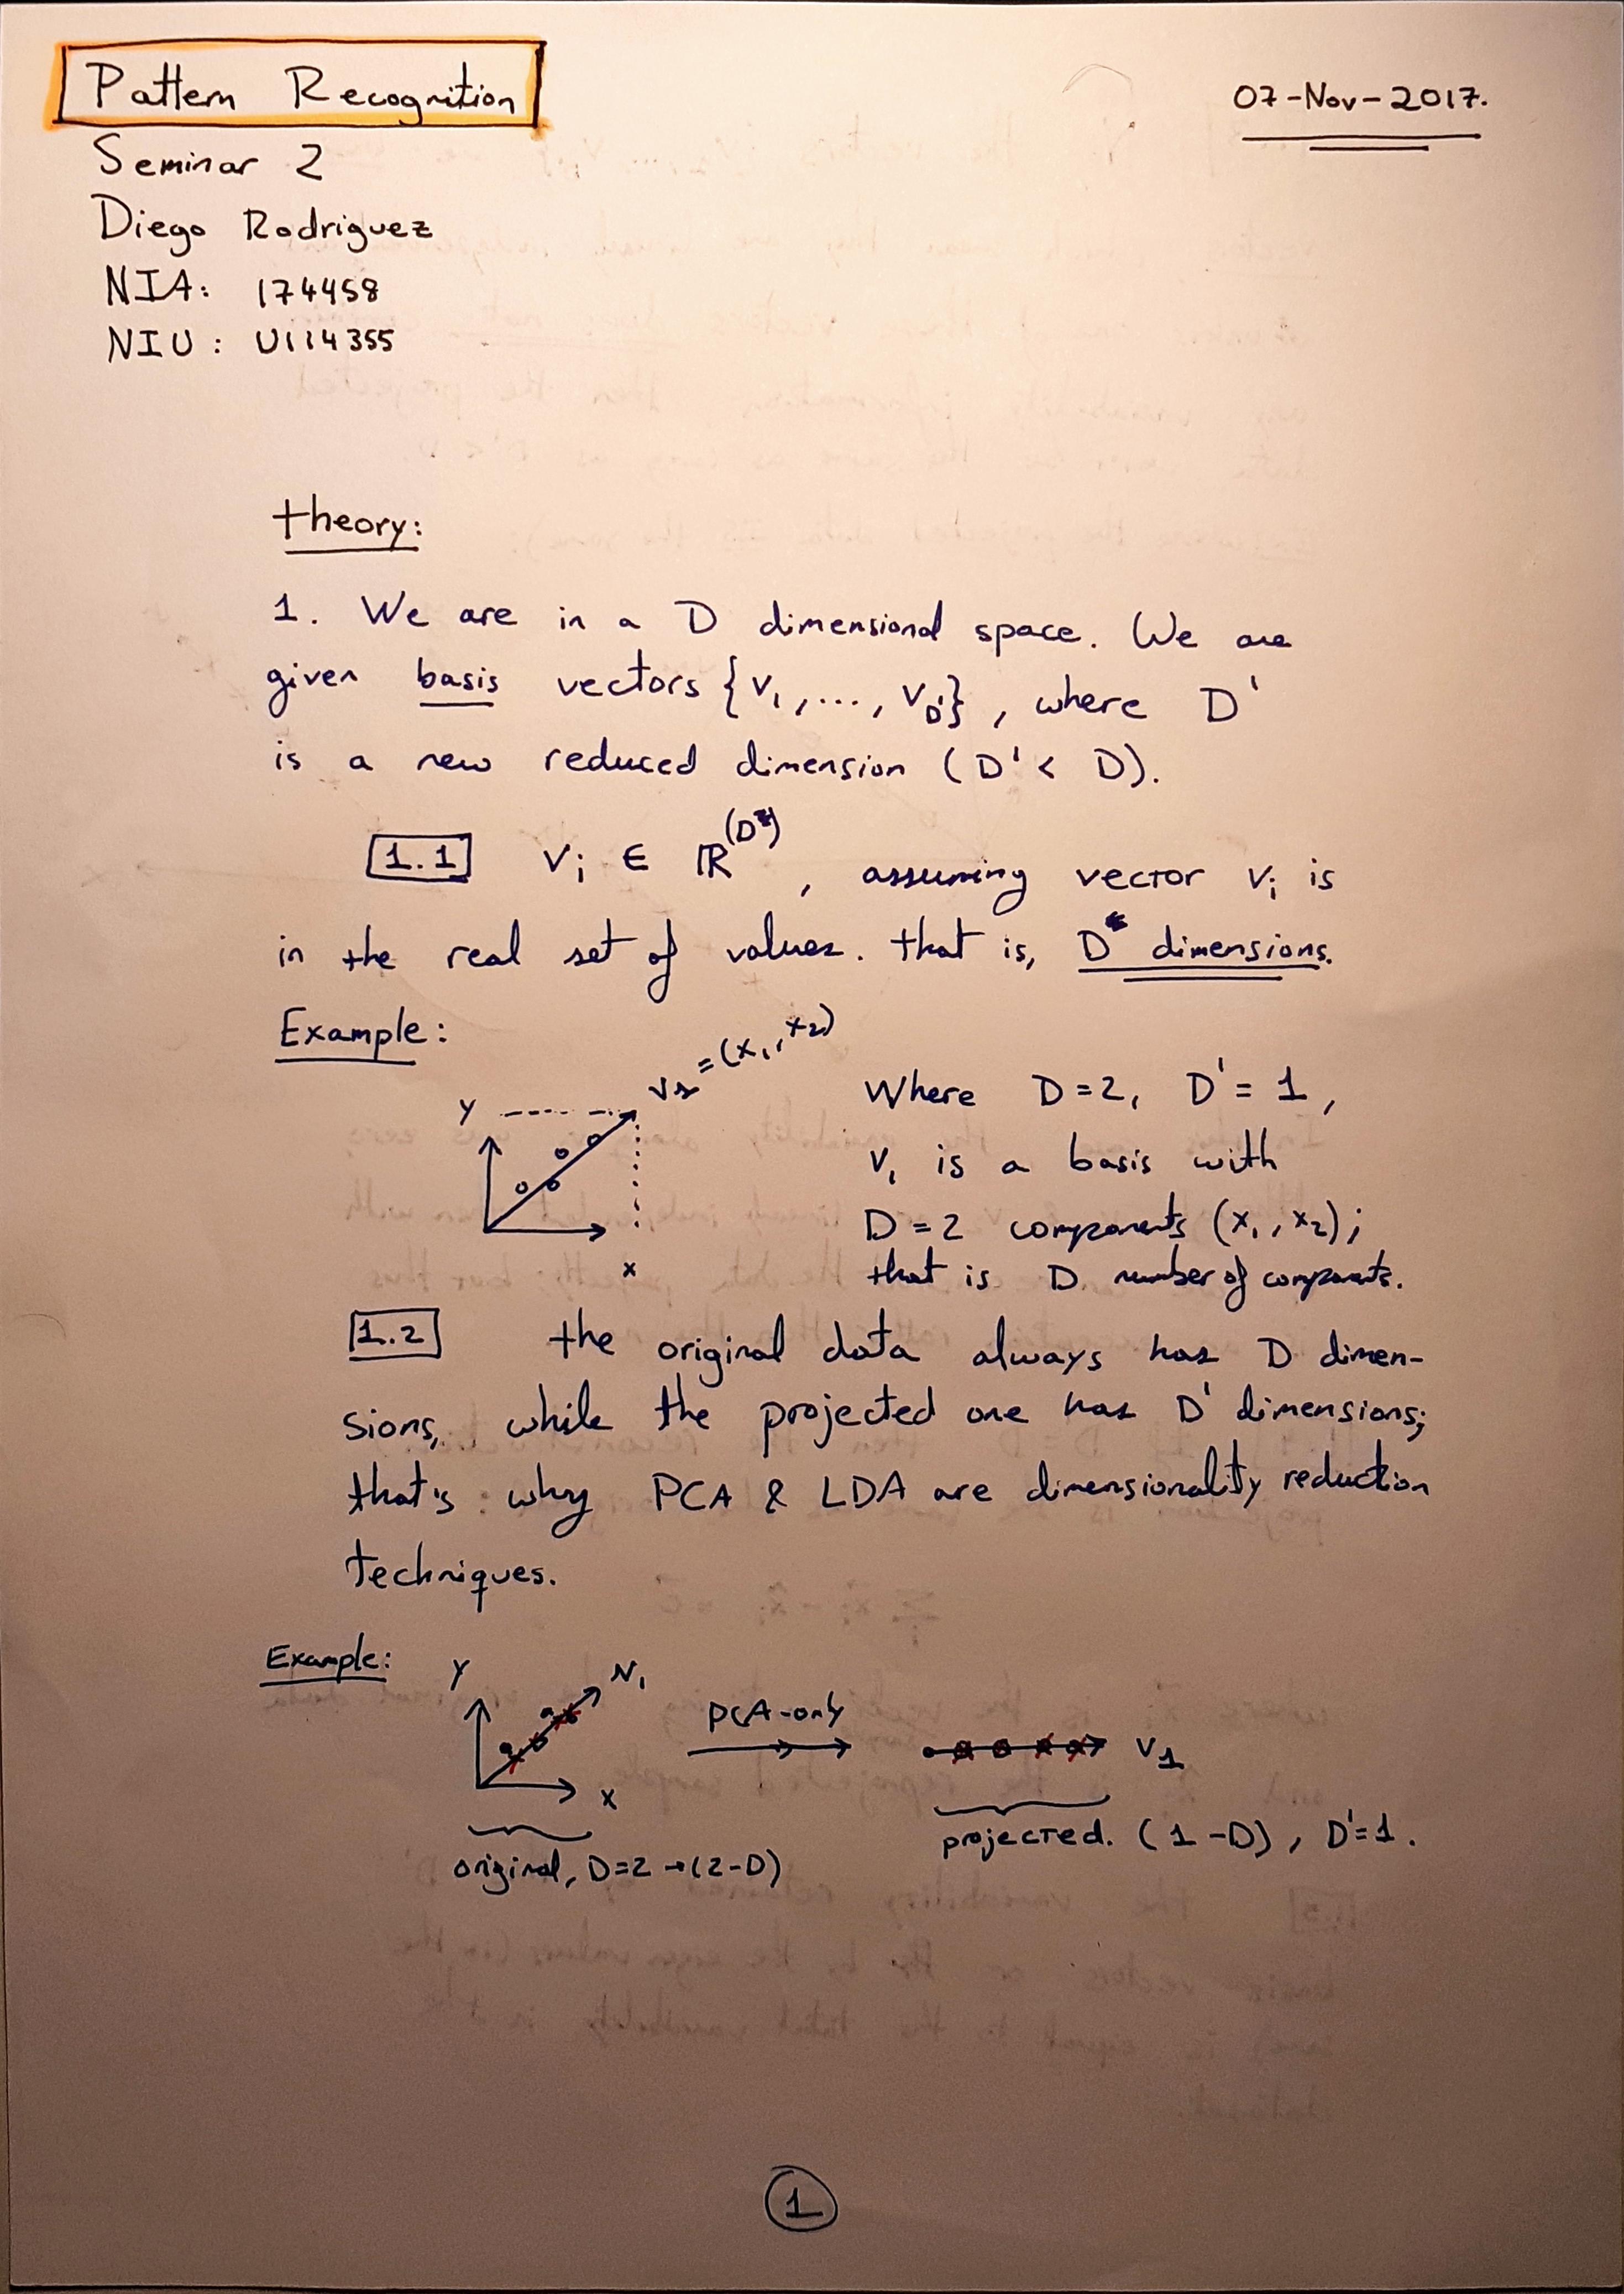 Pattern Recognition
07-Nov-2017.
Seminar 2
Diego Rodriguez
NIA: 174458
NIU: U114355
theory:
1. We are in a D dimensional space. We are
given basis vectors {v1, ..., vD'}, where D'
is a new reduced dimension (D' < D).
1.1 vi ∈ ℝ(D), assuming vector vi is
in the real set of values. that is, D dimensions.
Example:
v1 = (x1, x2)
Y
x
Where D=2, D'=1,
v1 is a basis with
D=2 components (x1, x2);
that is D number of components.
1.2 the original data always has D dimen-
sions, while the projected one has D' dimensions;
that's why PCA & LDA are dimensionality reduction
techniques.
Example:
Y
v1
x
PCA-only
v1
original, D=2 → (2-D)
projected. (1-D), D'=1.
1